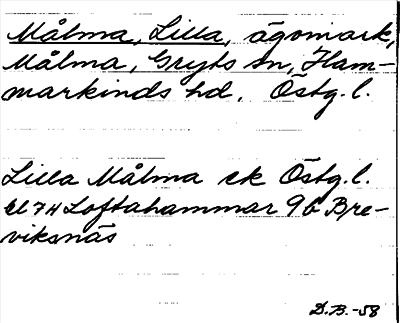 Målma, Lilla, ägomark,
Målma, Gryts sn, Ham-
markinds hd, Östg. l.
Lilla Målma ek Östg. l.
bl 74 Loftahammar 9b Bre-
viksnäs
D.B.-58